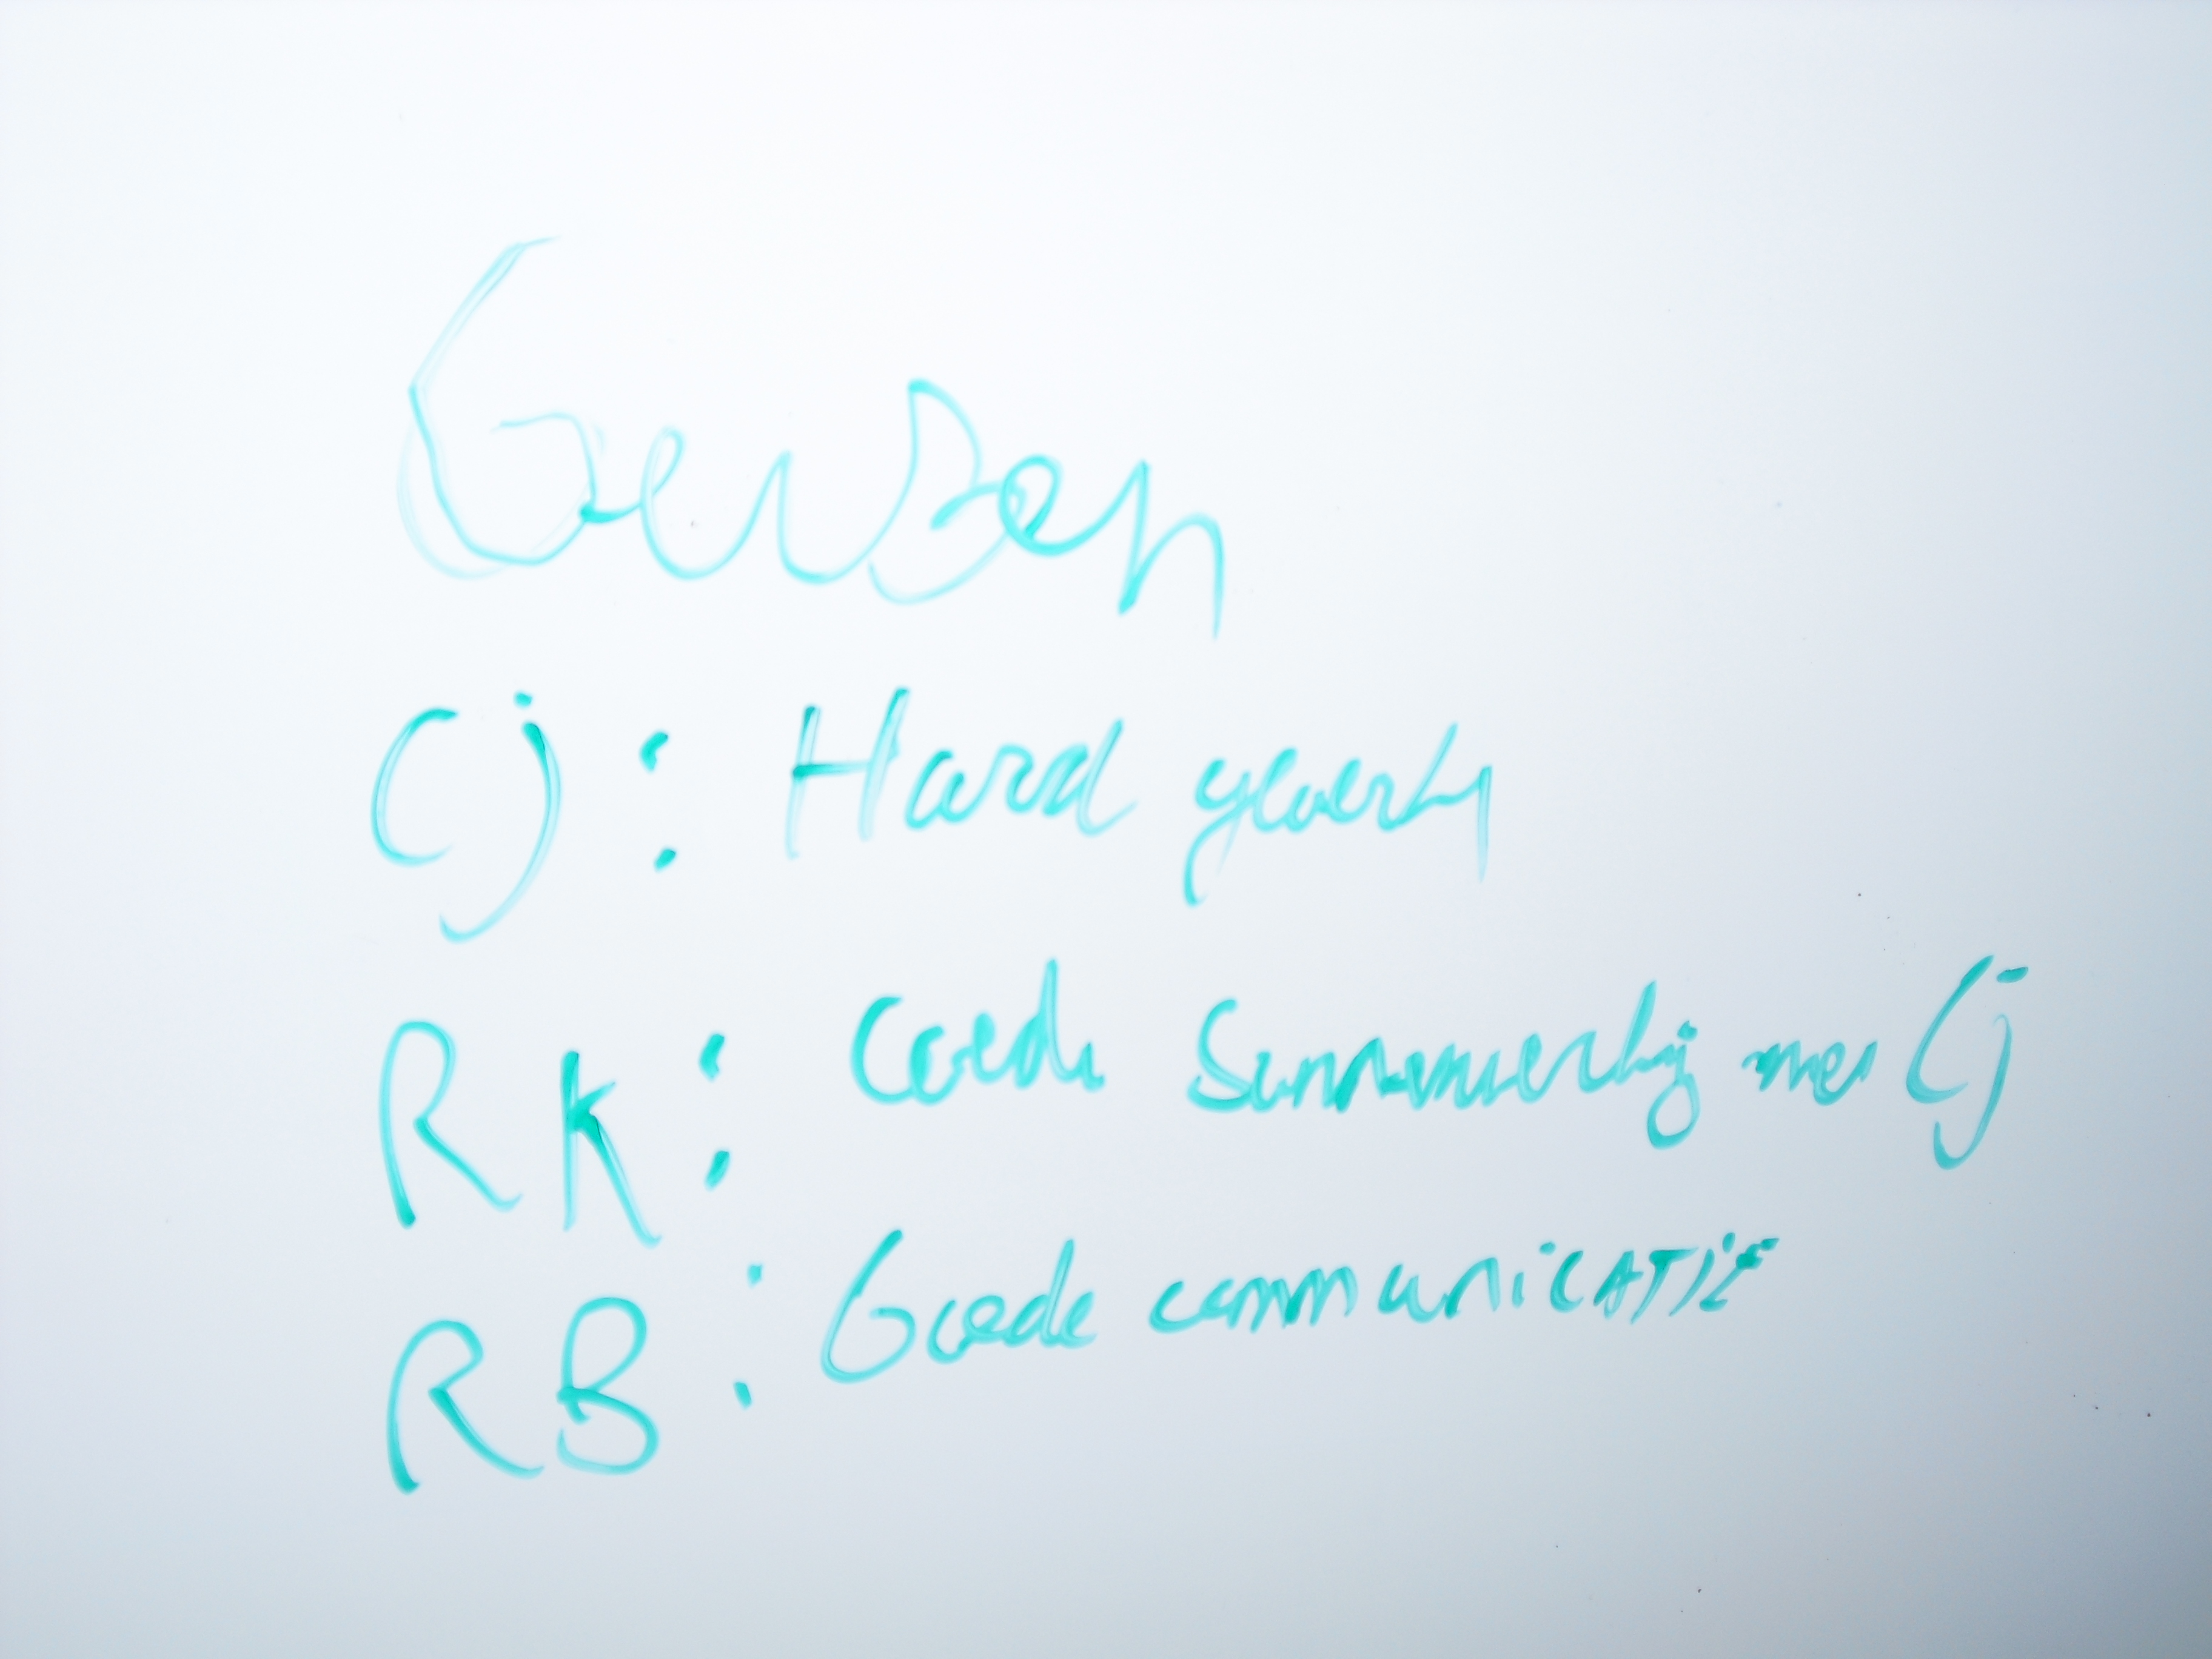 Gerson
Cj: Hard gewerkt
RK: Goede Summerij met Cj
RB: Goede communiCATIE